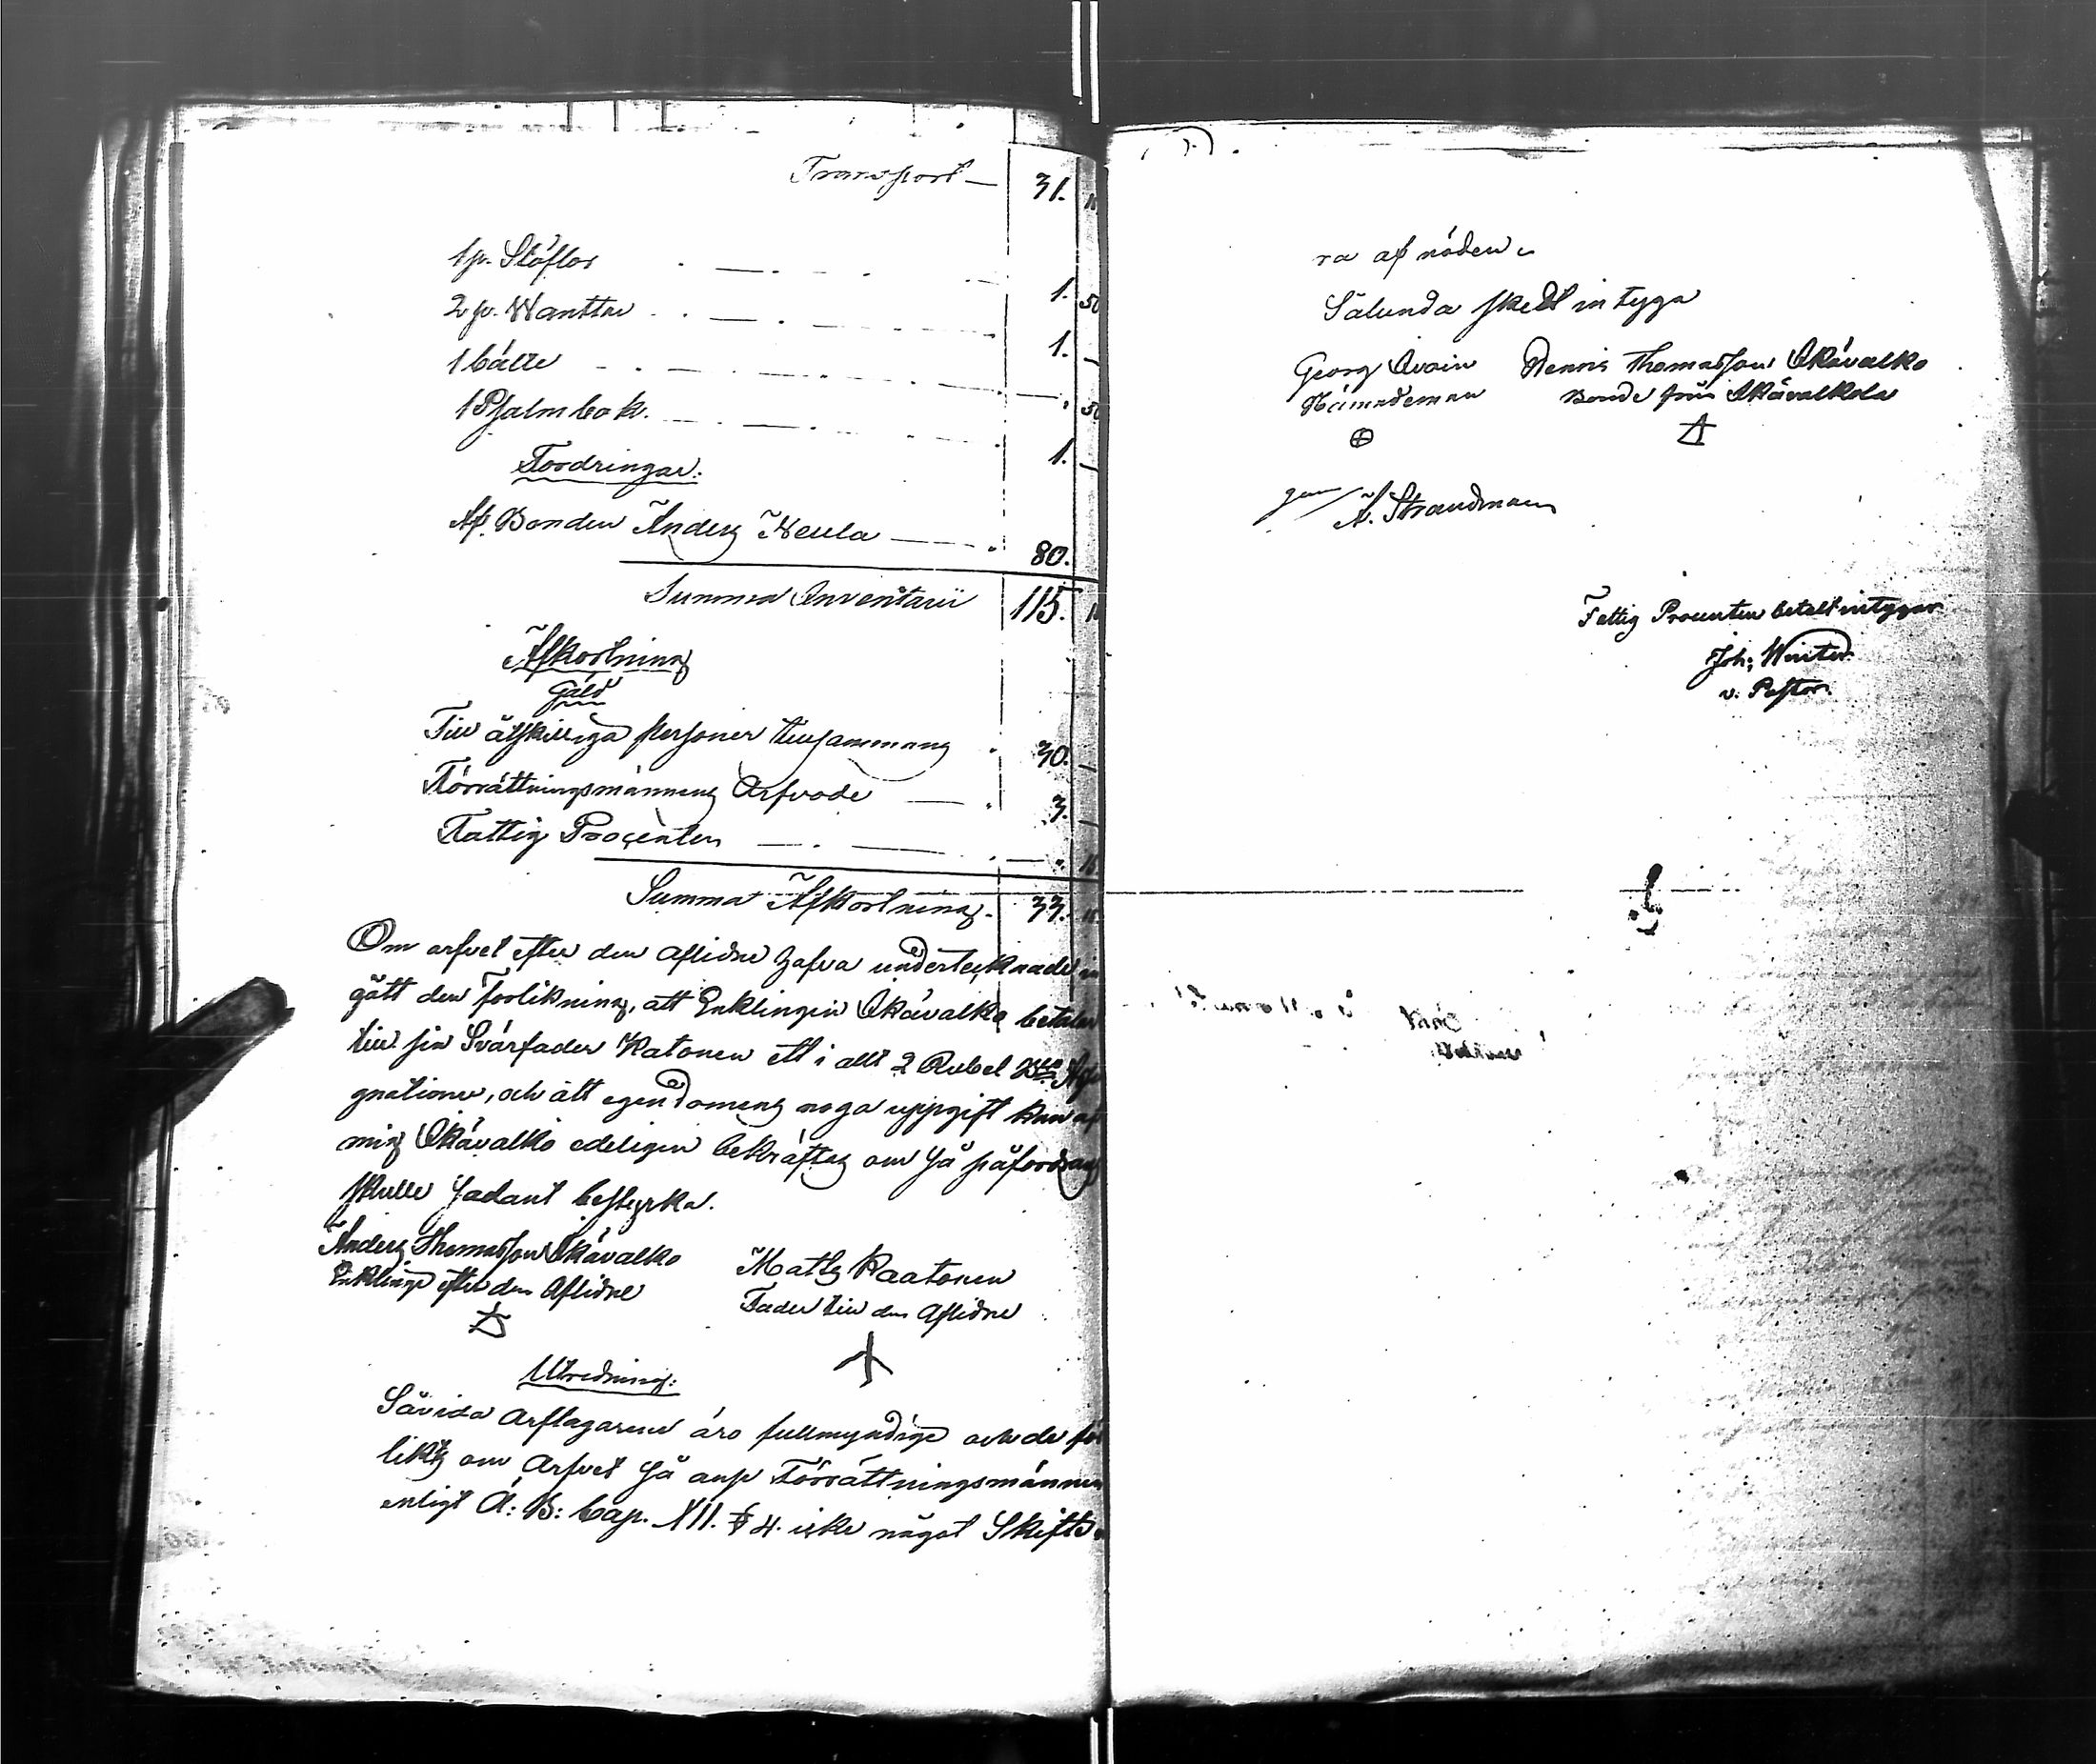 Transport — 31.
1 pr. Stöflor 1. 50
2 pr. Wanttar 1. —
1 bälte " 50
1 Psalmbok. 1. —
Fordringar:
Af Bonden Anders Neula — " 80.
Summa Inventarii 115.
Afkortning
Gäld
Till åtskilliga personer tillsammans " 30. —
Förrättningsmännens Arfvode — " 3. —
Fattig Procenten — "
Summa Afkortning. 33.
Om arfvet efter den aflidne hafva undertecknade in
gått den Förlikning, att Enklingen Ikävalko betalar
till sin Svärfader Katonen ett i allt 2 Rubel Bco Assi
gnationer, och att egendomens noga uppgift kan af
mig Ikävalko edeligen bekräftas om så påfordras
skulle sådant bestyrka.
Anders Thomasson Ikävalko Matts Kaatonen
Enkling efter den Aflidne Fader till den Aflidne
Utredning:
Såvida Arftagarene äro fullmyndige och de för
likts om Arfvet så anse Förrättningsmännen
enligt Ä: B: Cap. XII. § 4. icke något Skifte
ra af nöden
Sålunda skedt intyga
Georg Avoin Thomasson Ikävalko
Nämndeman Bonde från Ikävalkola
gm A. Strandman
Fattig Procenten betalt intygar
Joh: Winter
v. Pastor.